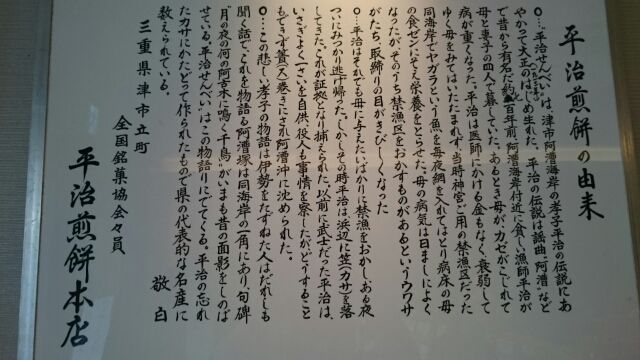 平治煎餅の由来
○…平治せんべいは、津市阿漕海岸の孝子平治の伝説にあ
やかって大正のはじめ生れた。平治の伝説は謡曲〝阿漕〟など
で昔から有名だ。約 百年前、阿漕海岸付近に貧しい漁師平治が
母と妻子の四人で暮していた。あるとき母が、カゼがこじれて
病が重くなった。平治は医師にかける金もなく、衰弱して
ゆく母をみてはいたたまれず、当時神宮ご用の禁漁区だった
同海岸でヤガラという魚を毎夜網を入れてはとり病床の母
の食ゼンにそえ栄養をとらせた。母の病気は日ましによく
なったが、そのうち禁漁区をおかすものがあるというウワサ
がたち、取締りの目がきびしくなった
○…平治はそれでも母に与えたいばかりに禁漁をおかし、ある夜
ついにみつかり逃げ帰った。しかしその時平治は浜辺に笠(カサ)を落
してきた。これが証拠となり捕えられた。以前に武士だった平治は、
いさぎよく一さいを自供、役人も事情を察したがどうすること
もできず簀(ス)巻きにされ阿漕沖に沈められた。
○…この悲しい孝子の物語は伊勢をたずねた人はだれしも
聞く話で、これを物語る阿漕塚は同海岸の一角にあり、句碑
〝月の夜の何の阿古木に鳴く千鳥〟がいまも昔の面影をしのば
せている。平治せんべいはこの物語りにでてくる。平治の忘れ
たカサにかたどって作られたもので県の代表的な名産に
数えられている。
敬白
三重県津市立町
全国銘菓協会々員
平治煎餅本店